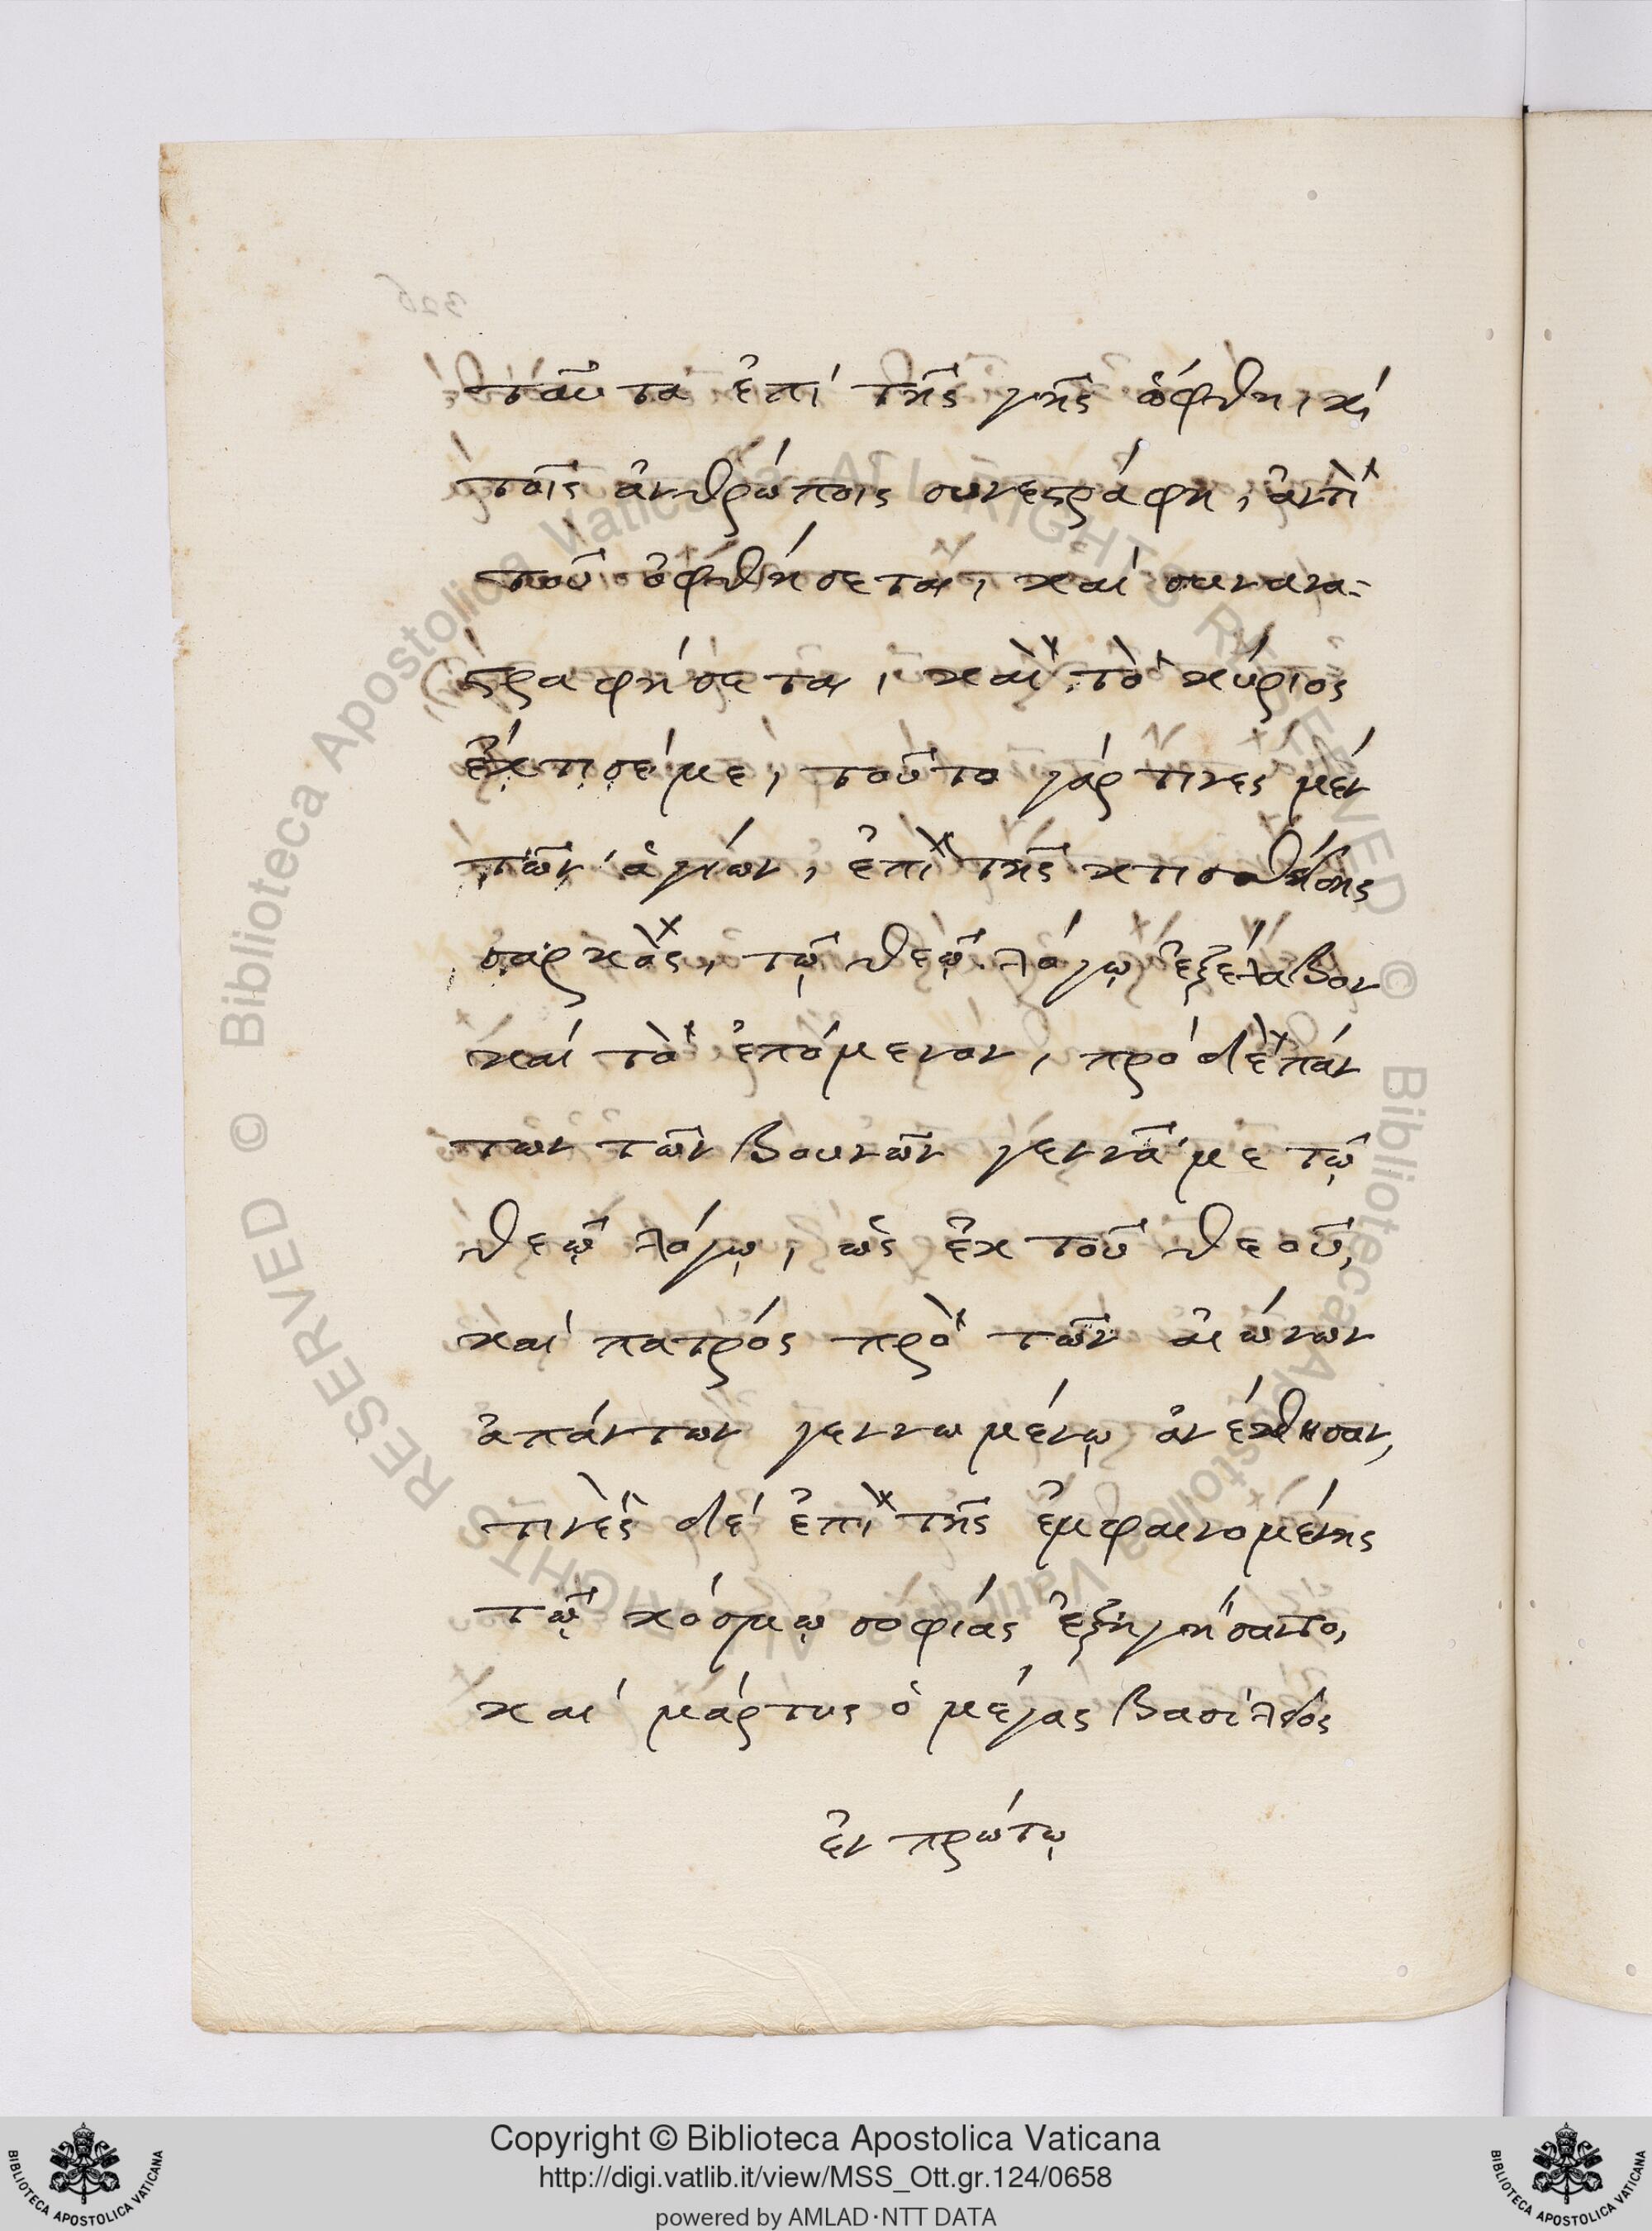 ταῦτα ἐπί τῆς γῆς ὤφθη, κ,
τοῖς ἀνθρώποις συνεστράφη, ἀντὶ
τοῦ ὀφθήσεται, καί συνανα-
στραφήσεται, καὶ τὸ κύριος
ἔκτισέ με, τοῦτο γάρ τινες μέν
τῶν ἁγίων, ἐπὶ τῆς κτισθείσης
σαρκὸς, τῷ θεῷ λόγῳ ἐξέλαβον
καί τὸ ἑπόμενον, πρό δὲ πάν
των τῶν βουνῶν γεννᾶ με τῷ
θεῷ λόγῳ, ὡς ἐκ τοῦ θεοῦ,
καί πατρός πρὸ τῶν αἰώνων
ἁπάντων γεννωμένῳ ἀνέθησαν,
τινὲς δέ ἐπὶ τῆς ἐμφαινομένης
τῷ κόσμῳ σοφίας ἐξηγήσαντο,
καί μάρτυς ὁ μέγας βασίλειος
ἐν πρώτῳ
Copyright © Biblioteca Apostolica Vaticana
http://digi.vatlib.it/view/MSS_Ott.gr.124/0658
powered by AMLAD·NTT DATA
BIBLIOTECA APOSTOLICA VATICANA
BIBLIOTECA APOSTOLICA VATICANA
© Biblioteca Apostolica Vaticana ALL RIGHTS RESERVED
© Biblioteca Apostolica Vaticana ALL RIGHTS RESERVED